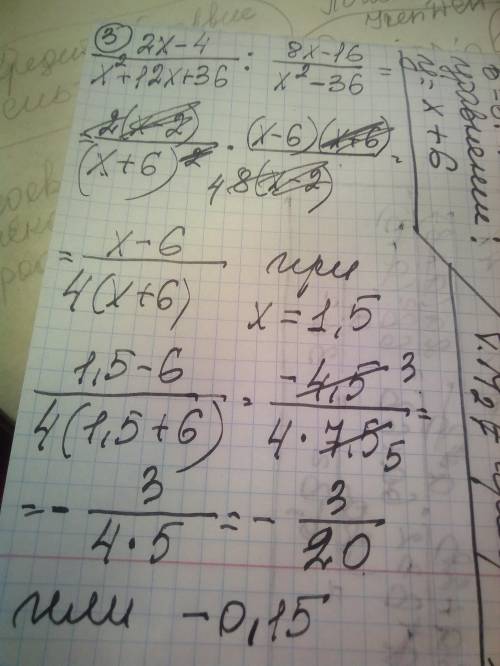 ③ (2x-4)/(x²+12x+36) : (8x-16)/(x²-36) =
= 2(x-2)/(x+6)² · (x-6)(x+6)/4 8(x-2) =
= (x-6)/(4(x+6)) при
x=1,5
(1,5-6)/(4(1,5+6)) = (-4,5 3)/(4·7,5 5) =
= - 3/(4·5) = - 3/20
или -0,15
y=x+6